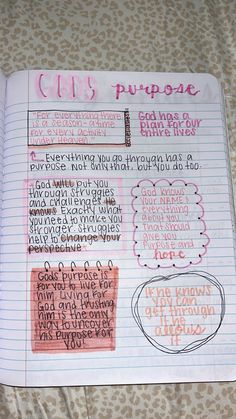 GODS purpose
"For everything there
is a season - a time
for every activity
under Heaven."
God has a
plan for our
entire lives
Everything you go through has a
purpose. Not only that, but you do too.
God will put you
through struggles
and challenges. He
knows Exactly what
you need to make you
stronger. Struggles
help to change your
perspective
God knows
your NAME &
everything
about you.
That should
give you
Purpose and
hope
Gods purpose is
for you to live for
him. Living for
God and trusting
him is the only
way to uncover
his Purpose for
you!
If he knows
you can
get through
it he
allows
it